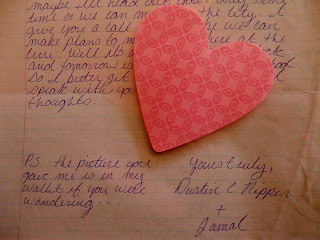 maybe Ill head out your way some
time or we can the city. I
give you a call we can
make plans to at the
Well its
and tomorrow
So I better get
speak with you
thoughts.
PS. the picture you
gave me is in my
wallet if you were
wondering...
Yours truly,
Dustin C Nipper
+
Jamal